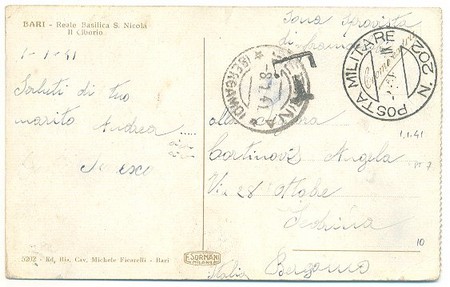 BARI - Reale Basilica S. Nicola
Il Ciborio
1-1-41
Saluti di tuo
marito Andrea
Zona sprovista
di francobolli
POSTA MILITARE N. 202
(BERGAMO)
-8.1.41
T
1.1.41
Alla Signora
Cortinovis Angela
PT 7
Via 28 Ottobre
10
Italia Bergamo
5202 - Ed. Ris. Cav. Michele Ficarelli - Bari
F. SORMANI
MILANO